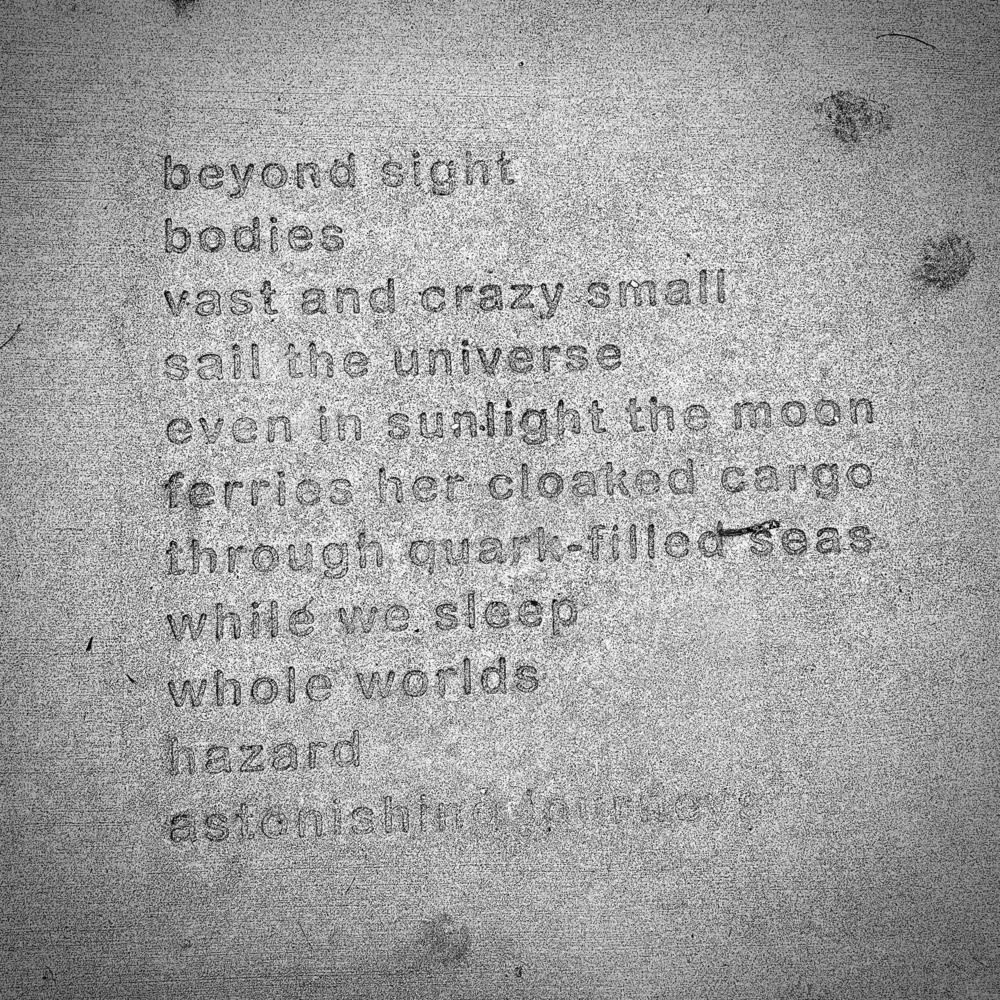 beyond sight
bodies
vast and crazy small
sail the universe
even in sunlight the moon
ferries her cloaked cargo
through quark-filled seas
while we sleep
whole worlds
hazard
astonishing journeys